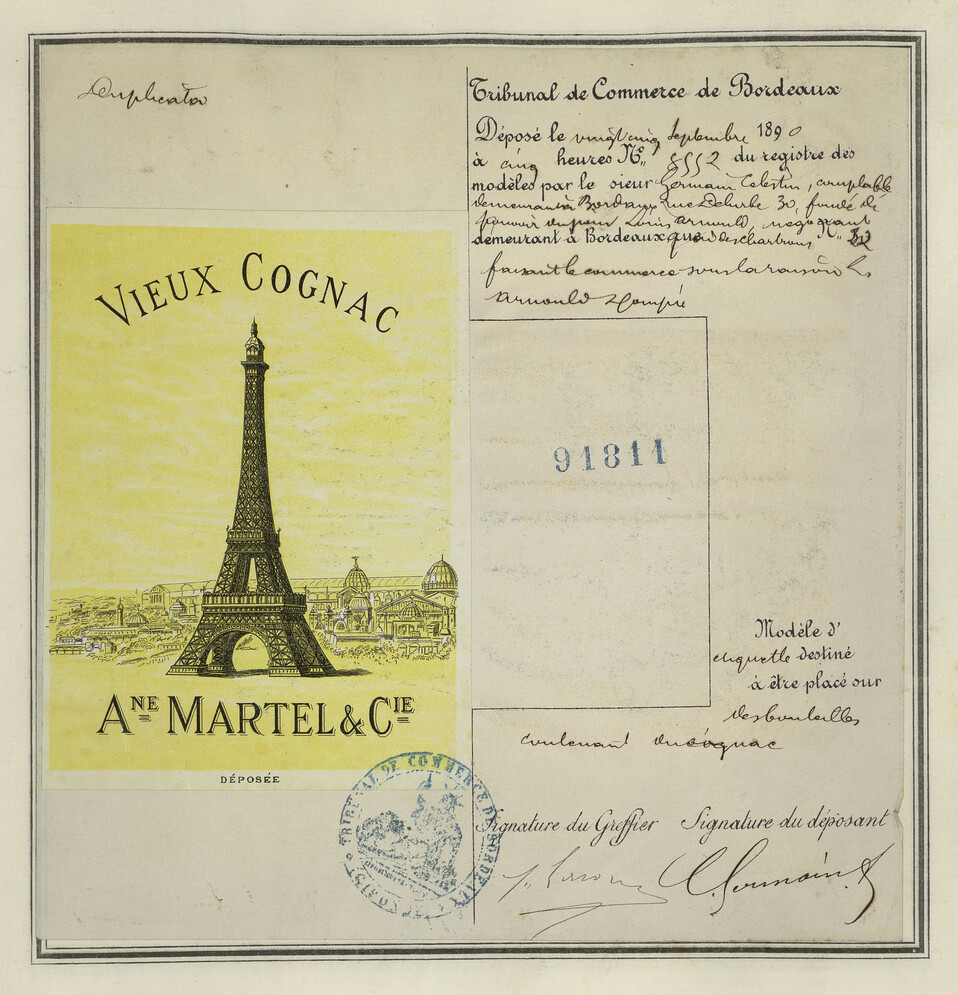 Duplicata
VIEUX COGNAC
ANE MARTEL & CIE
DÉPOSÉE
Tribunal de Commerce de Bordeaux
Déposé le vingt cinq Septembre 1890
à cinq heures No 8552 du registre des
modèles par le sieur Germain Celestin, comptable
demeurant à Bordeaux rue 30, fondé de
pouvoir Louis Arnould, negociant
demeurant à Bordeaux quai des Chartrons No 32
faisant le commerce sous la raison Ls
Arnould & Compie
91811
Modèle d'
etiquette destiné
à être placé sur
des bouteilles
contenant du cognac
TRIBUNAL DE COMMERCE DE BORDEAUX
Signature du Greffier Signature du déposant
C. Germain